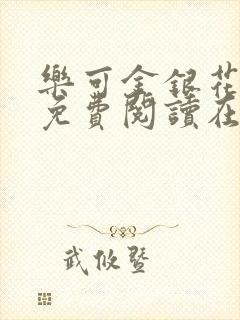 樂可金銀花
免費閱讀在
武攸暨